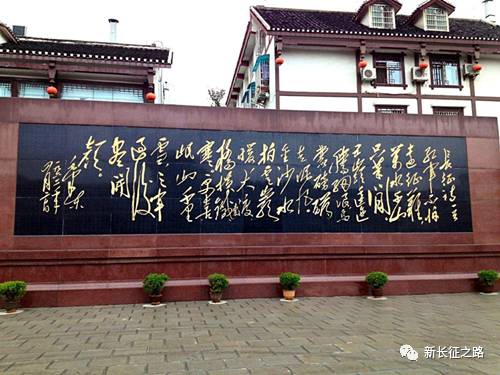 长征诗一首
红军不怕
远征难
万水千山
只等闲
五岭逶迤
腾细浪乌
蒙磅礴
走泥丸
金沙水
拍云崖
暖大渡
桥横铁索
寒更喜
岷山千里
雪三军
过后
尽开
颜
毛泽东
新长征之路